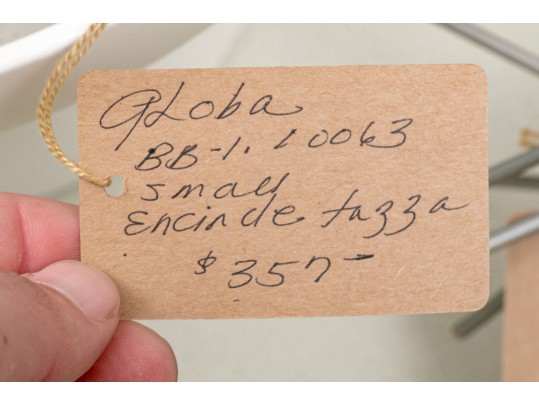 Globa
BB-1.10063
small
Encinde tazza
$357-